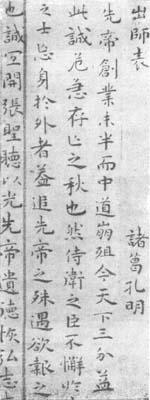 出師表 諸葛孔明
先帝創業未半而中道崩殂今天下三分益
此誠危急存亡之秋也然侍衛之臣不懈於
之士忘身於外者蓋追先帝之殊遇欲報之
也誠宜開張聖聽以光先帝遺德恢弘志士